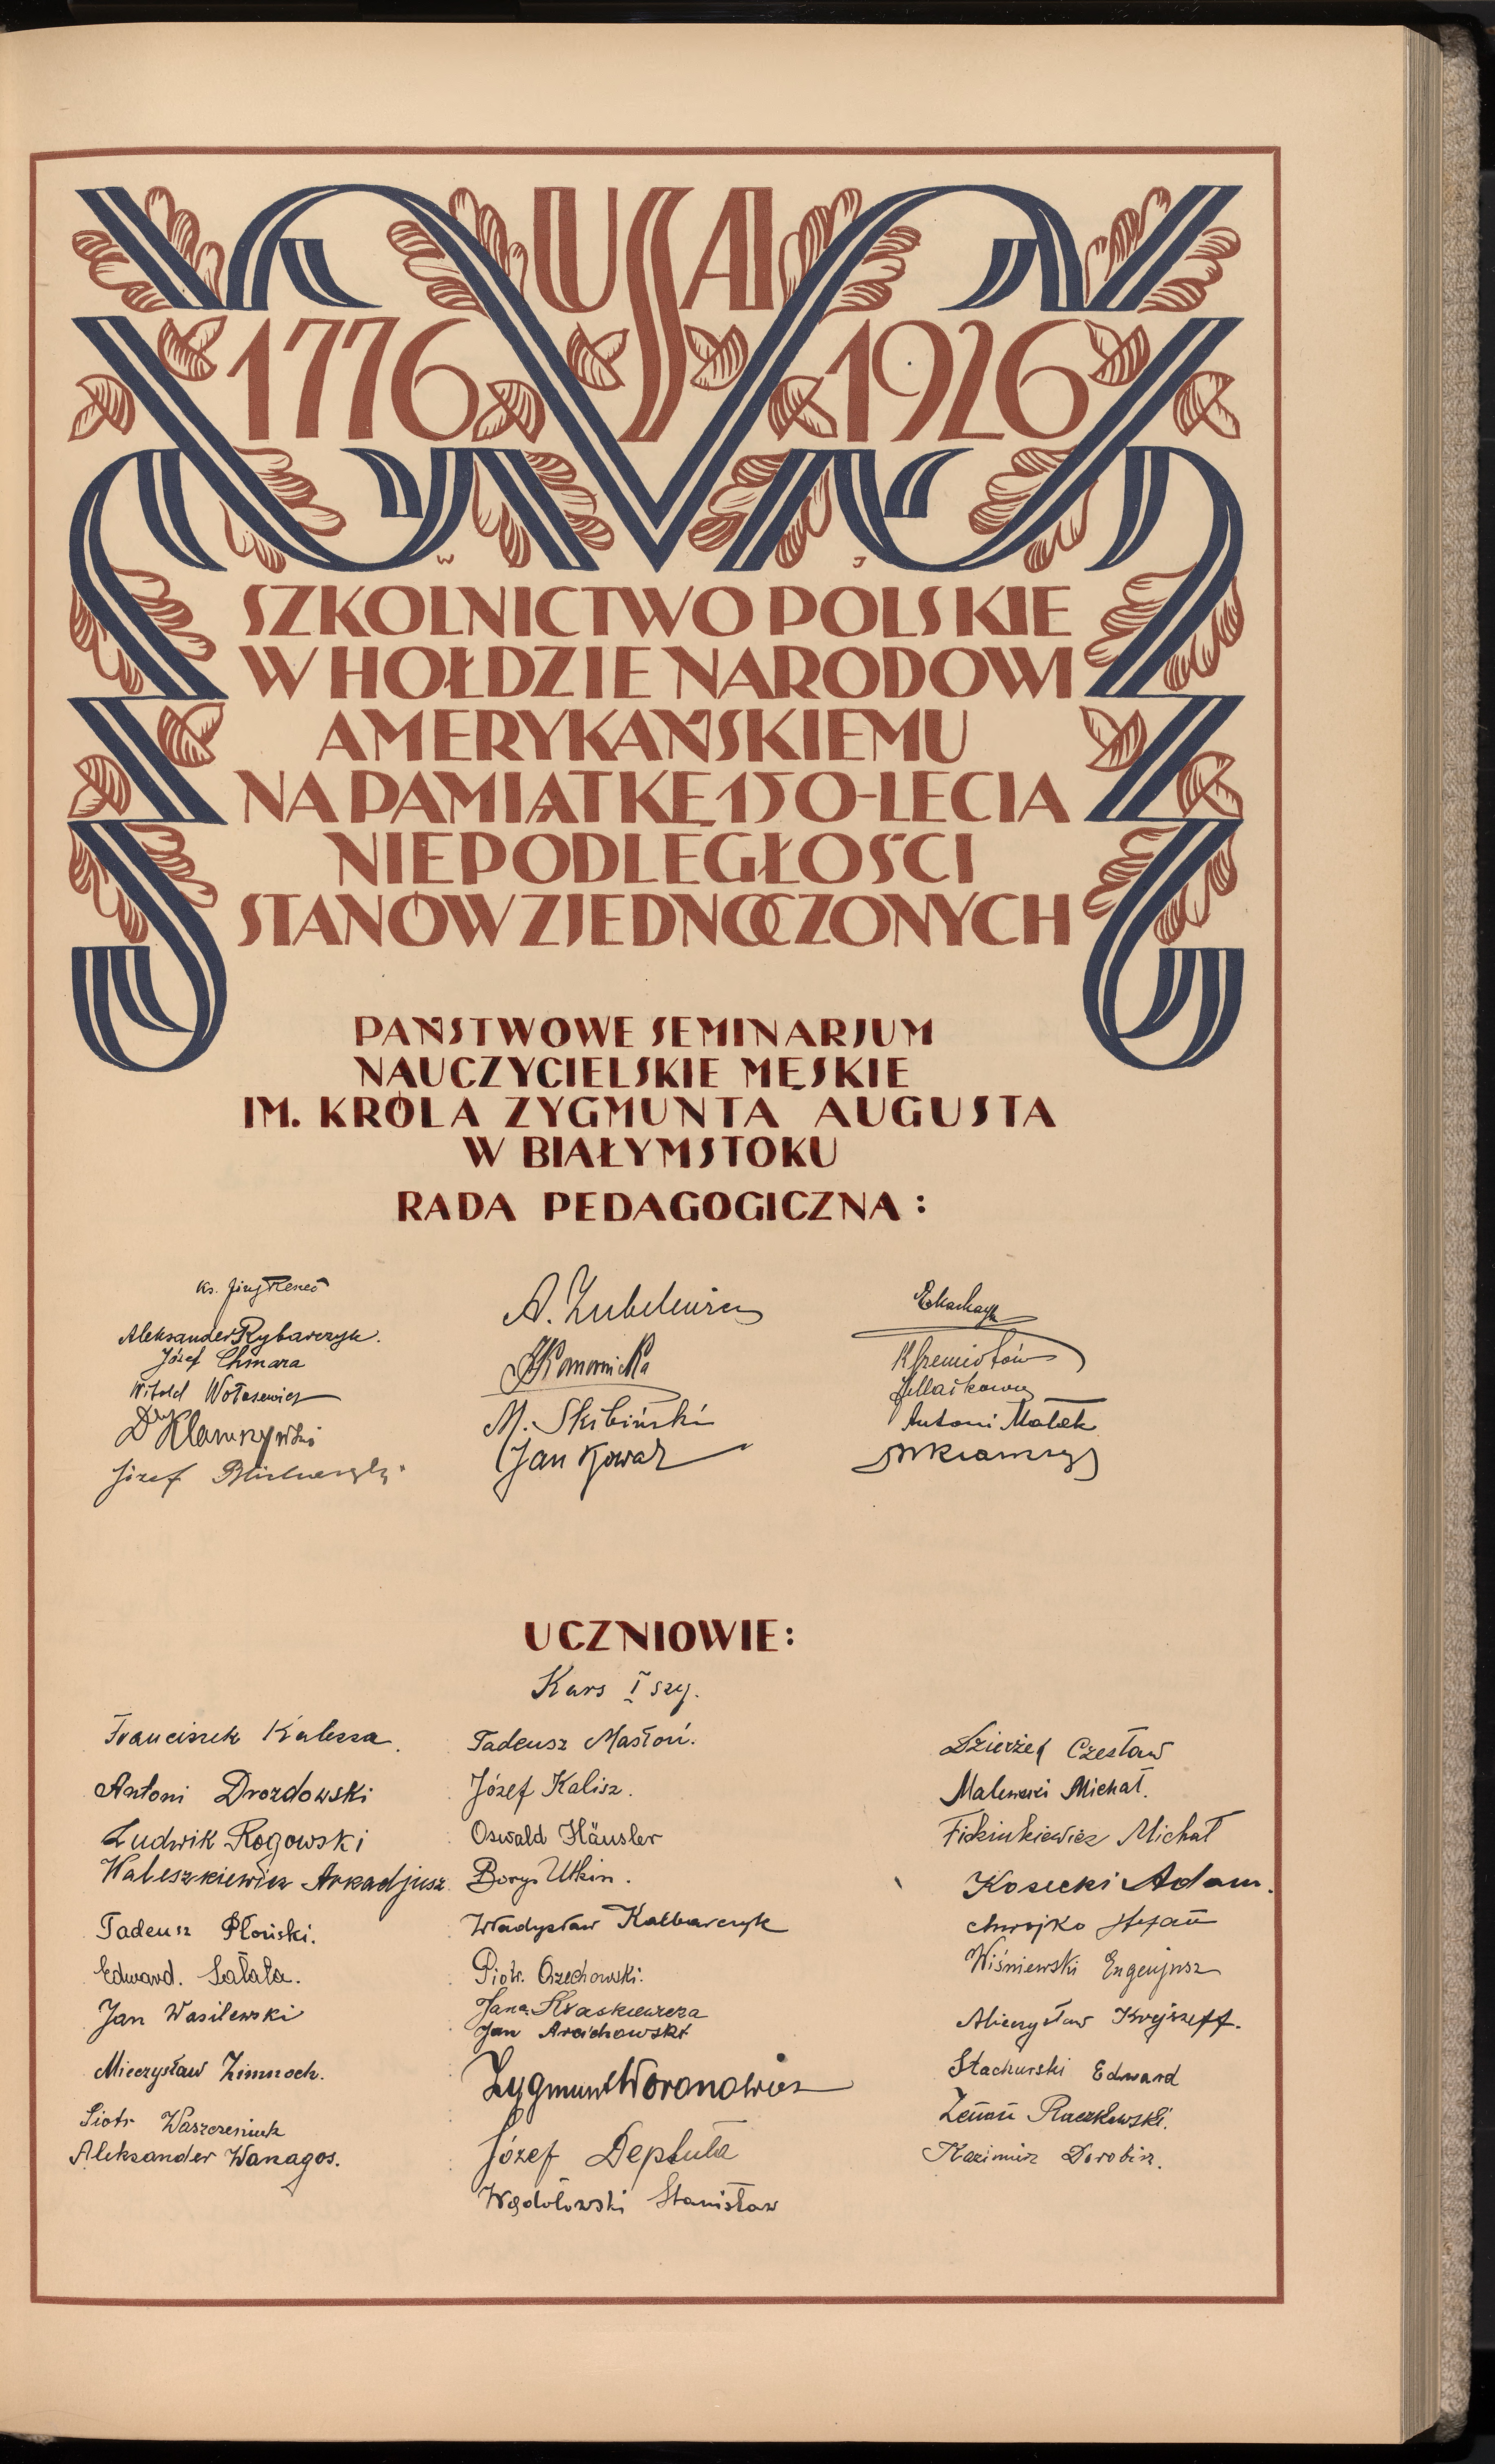 USA
1776 1926
W J
SZKOLNICTWO POLSKIE
W HOŁDZIE NARODOWI
AMERYKAŃSKIEMU
NA PAMIĄTKĘ 150-LECIA
NIEPODLEGŁOŚCI
STANÓW ZJEDNOCZONYCH
PAŃSTWOWE SEMINARJUM
NAUCZYCIELSKIE MĘSKIE
IM. KRÓLA ZYGMUNTA AUGUSTA
W BIAŁYMSTOKU
RADA PEDAGOGICZNA:
Ks. Jerzy
Aleksander Rybarczyk.
Józef Chmara
Witold Wołosewicz
Dr
Józef
A.
Komornicka
M. Skibiński
Jan Kowal
Antoni Małek
UCZNIOWIE:
Kurs I szy.
Franciszek Kalessa.
Antoni Drozdowski
Ludwik Rogowski
Waleszkiewicz Arkadjusz
Tadeusz Płoński.
Edward. Sałata.
Jan Wasilewski
Mieczysław Zimnoch.
Piotr Waszczeniuk
Aleksander Wanagos.
Tadeusz Masłoń.
Józef Kalisz.
Oswald Häusler
Borys Utkin.
Władysław Kalbarczyk
Piotr. Orzechowski.
Jana
Jan Arcichowski
Zygmunt Woronowicz
Józef Deptuła
Wądołowski Stanisław
Dzierżek Czesław
Malewski Michał.
Fickinkiewicz Michał
Kosecki Adam.
Chwojko Stefan
Wiśniewski Eugenjusz
Mieczysław
Stachurski Edward
Zenon Raczkowski.
Kazimierz Dorobisz.